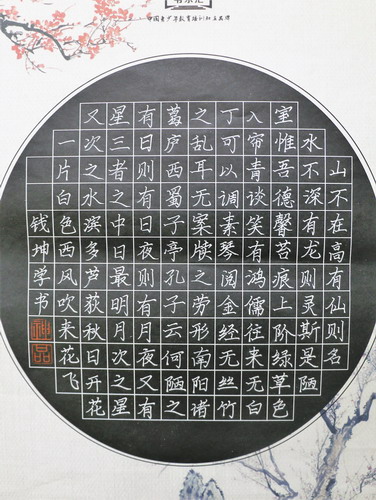 中国青少年教育培训知名品牌
山不在高有仙则名
水不深有龙则灵斯是陋
室惟吾德馨苔痕上阶绿草色
入帘青谈笑有鸿儒往来无白
丁可以调素琴阅金经无丝竹
之乱耳无案牍之劳形南阳诸
葛庐西蜀子亭孔子云何陋之
有日则有日夜则有月夜又有
星三者之中日最明月次之星
又次之水滨多芦荻秋日开花
一片白色西风吹来花飞
钱坤学书